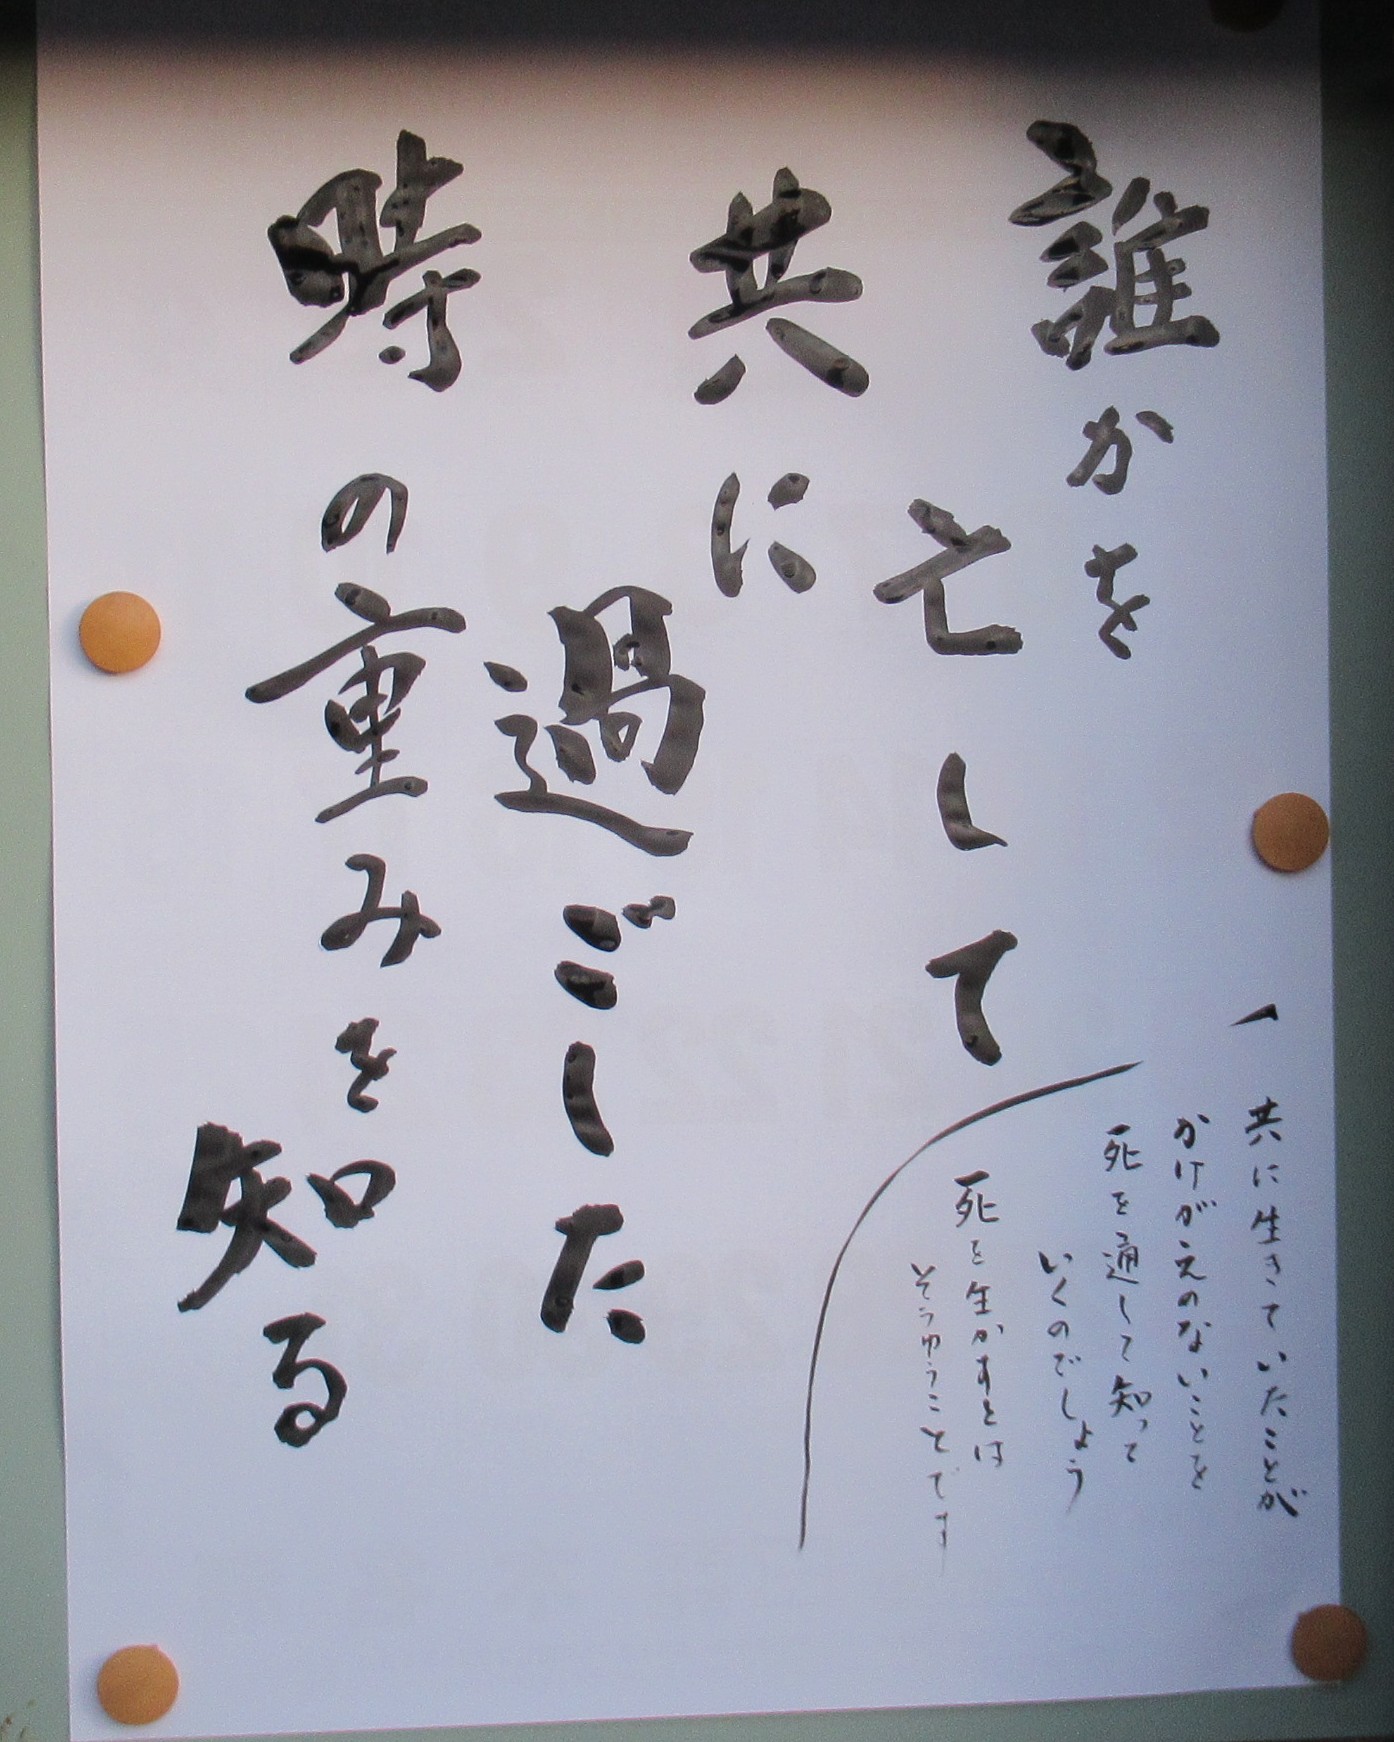 誰かを
亡して
共に
過ごした
時の重みを
知る
共に生きていたことが
かけがえのないことを
死を通して知って
いくのでしょう
死を生かすとは
そうゆうことです